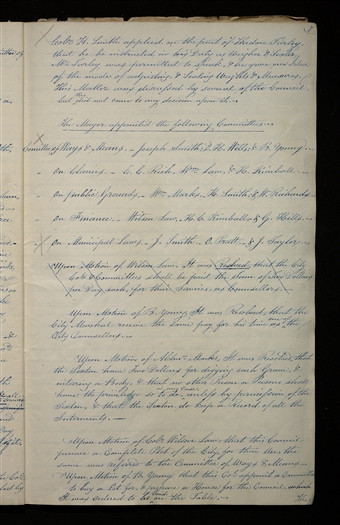 Smith appeared on the part of Theodore Turley,
that he be instructed in his Duty as Weigher & Sealer,
Mr. Turley was permitted to Speak, & he gave an Idea
of the mode of adjusting & Sealing Weights & Measures,
This Matter was discussed by several of the Council
but did not come to any decision upon it.
The Mayor appointed the following Committees
Committee of Ways & Means - Joseph Smith, D. H. Wells, & B. Young
on Claims - C. C. Rich, Wm. Law, & H. Kimball
on public Grounds - Wm. Marks, H. Smith, & W. Richards
on Finance - Wilson Law, H. C. Kimball & G. Hills
on Municipal Laws - J. Smith, O. Pratt, & J. Taylor
Upon Motion of Wilson Law, it was Resolved, that the City
Col. & Committees should be paid the sum of two Dollars
per Day each, for their Services as Councillors
Upon Motion of B. Young, it was Resolved, that the
City Marshal receive the Same pay for his time as the
City Councillors
Upon Motion of Alder. Marks, it was Resolved, that
the Sexton have Two Dollars for digging each Grave, &
interring a Body, & that no other Person or Persons shall
have the privilege so to do, unless by permission of the
Sexton, & that the Sexton do keep a Record of all the
Interments
Upon Motion of Wilson Law that this Council
procure a Complete Plot of the City, for their Use, the
same was referred to the Committee of Ways & Means.
Upon Motion of B. Young that this Col. appoint a Committee
to buy a Lot for & prepare a House for the Council, which
it was ordered to lie on the Table.